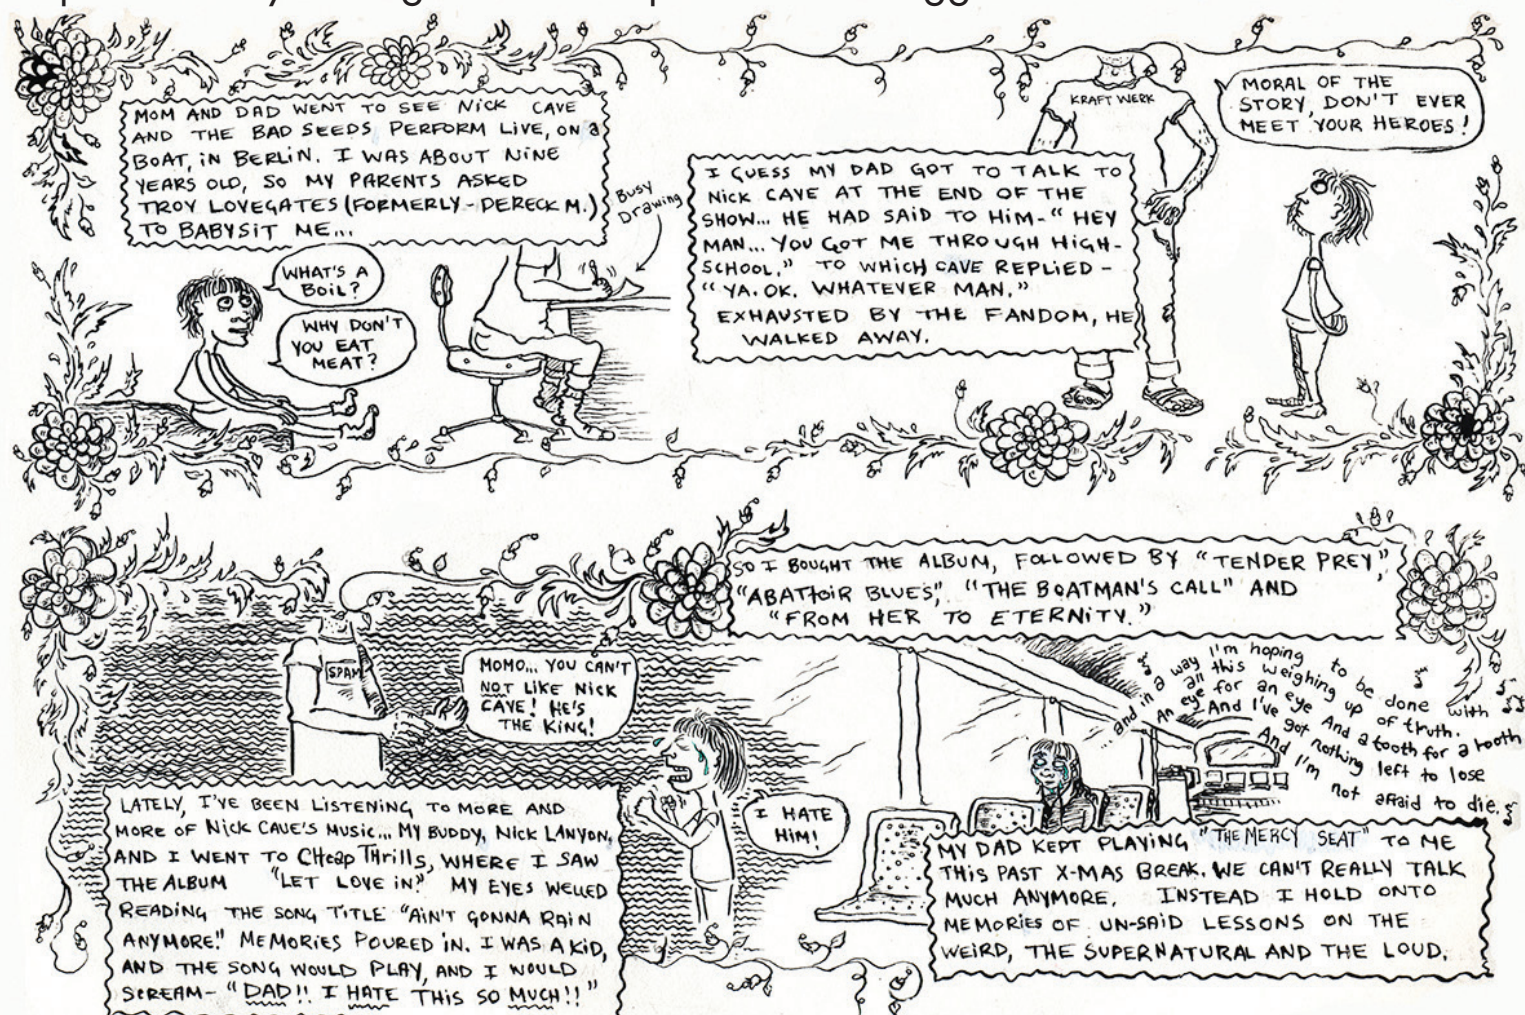 MOM AND DAD WENT TO SEE NICK CAVE
AND THE BAD SEEDS PERFORM LIVE, ON a
BOAT, IN BERLIN. I WAS ABOUT NINE
YEARS OLD, SO MY PARENTS ASKED
TROY LOVEGATES (FORMERLY - DERECK M.)
TO BABYSIT ME...
BUSY
Drawing
WHAT'S A
BOIL?
WHY DON'T
YOU EAT
MEAT?
KRAFT WERK
I GUESS MY DAD GOT TO TALK TO
NICK CAVE AT THE END OF THE
SHOW... HE HAD SAID TO HIM - "HEY
MAN... YOU GOT ME THROUGH HIGH-
SCHOOL." TO WHICH CAVE REPLIED -
"YA. OK. WHATEVER MAN."
EXHAUSTED BY THE FANDOM, HE
WALKED AWAY.
MORAL OF THE
STORY, DON'T EVER
MEET YOUR HEROES!
SPAM
MOMO... YOU CAN'T
NOT LIKE NICK
CAVE! HE'S
THE KING!
I HATE
HIM!
LATELY, I'VE BEEN LISTENING TO MORE AND
MORE OF NICK CAVE'S MUSIC... MY BUDDY, NICK LANYON,
AND I WENT TO CHeap THrills, WHERE I SAW
THE ALBUM "LET LOVE IN." MY EYES WELLED
READING THE SONG TITLE "AIN'T GONNA RAIN
ANYMORE." MEMORIES POURED IN. I WAS A KID,
AND THE SONG WOULD PLAY, AND I WOULD
SCREAM - "DAD!! I HATE THIS SO MUCH!!"
SO I BOUGHT THE ALBUM, FOLLOWED BY "TENDER PREY,"
"ABATTOIR BLUES", "THE BOATMAN'S CALL" AND
"FROM HER TO ETERNITY."
...and in a way I'm hoping to be done with
all this weighing up of truth.
An eye for an eye And a tooth for a tooth
And I've got nothing left to lose
And I'm not afraid to die.
MY DAD KEPT PLAYING "THE MERCY SEAT" TO ME
THIS PAST X-MAS BREAK. WE CAN'T REALLY TALK
MUCH ANYMORE. INSTEAD I HOLD ONTO
MEMORIES OF UN-SAID LESSONS ON THE
WEIRD, THE SUPERNATURAL AND THE LOUD.